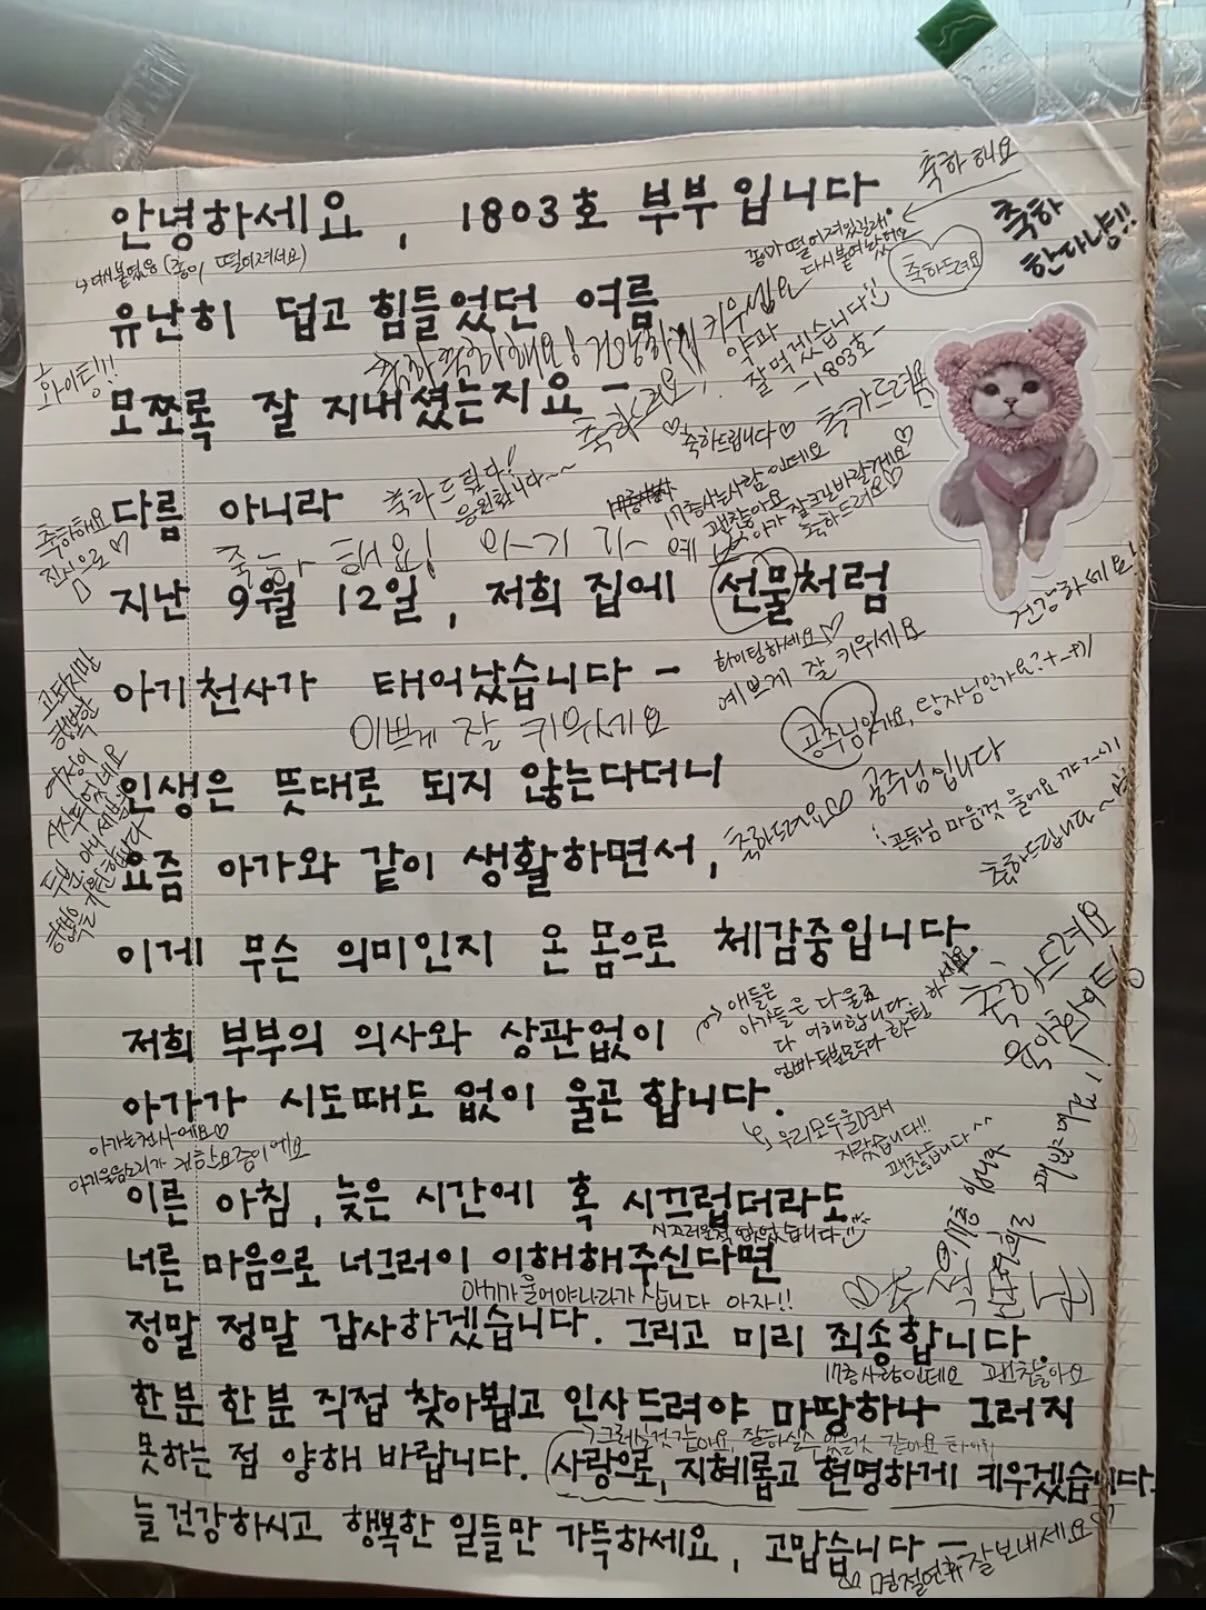 축하해요
안녕하세요, 1803호 부부입니다.
축하
한다냥!!
종이 떨어져있길래
다시붙여놨어요
축하드려요
↳ 다시붙였음 (종이 떨어져서요)
유난히 덥고 힘들었던 여름
축하축하해요! 건강하게 키우십요
약과
잘 먹겠습니다
-1803호-
화이팅!!!
모쪼록 잘 지내셨는지요 -
축하드려요,
♡축하드립니다♡
축카드려욤
다름 아니라
축하드립니다!
응원합니다~~
17층사는사람인데요
괜찮아요
아가 잘크길바랄게요♡
축하드려요♡
축하해요
진심으로♡
축하해요! 아기가 예뻐
지난 9월 12일, 저희 집에 선물처럼
건강하세요!
아기천사가 태어났습니다 -
화이팅하세요♡
예쁘게 잘 키우세요
이쁘게 잘 키우세요
공주님인가요, 왕자님인가요?
고되지만
행복한
여정이
시작되었네요
두분, 아니 세분의
행복을 기원합니다
인생은 뜻대로 되지 않는다더니
공주님입니다
공듀님 마음껏 울어요
요즘 아가와 같이 생활하면서,
축하드려요♡
축하드립니다~
이게 무슨 의미인지 온 몸으로 체감중입니다.
축하드려요
육아화이팅!
저희 부부의 의사와 상관없이
애들은
아가들은 다울죠
다 이해합니다
엄빠 두분모두다 화팅하세요
아가가 시도때도 없이 울곤 합니다.
우리모두울면서
자랐습니다!!
괜찮습니다^^
아가는천사에요♡
아기울음소리가 귀한요즘이에요
이른 아침, 늦은 시간에 혹 시끄럽더라도
시끄러운적 없었습니다
너른 마음으로 너그러이 이해해주신다면
아기가 울어야나라가 삽니다 아자!!
정말 정말 감사하겠습니다. 그리고 미리 죄송합니다.
17층사람인데요 괜찮아요
한분한분 직접 찾아뵙고 인사드려야 마땅하나 그러지
그러실것같아요, 잘하실수있을것 같아요
못하는 점 양해 바랍니다. 사랑으로, 지혜롭고 현명하게 키우겠습니다.
늘 건강하시고 행복한 일들만 가득하세요, 고맙습니다 -
♡ 명절연휴 잘보내세요♡